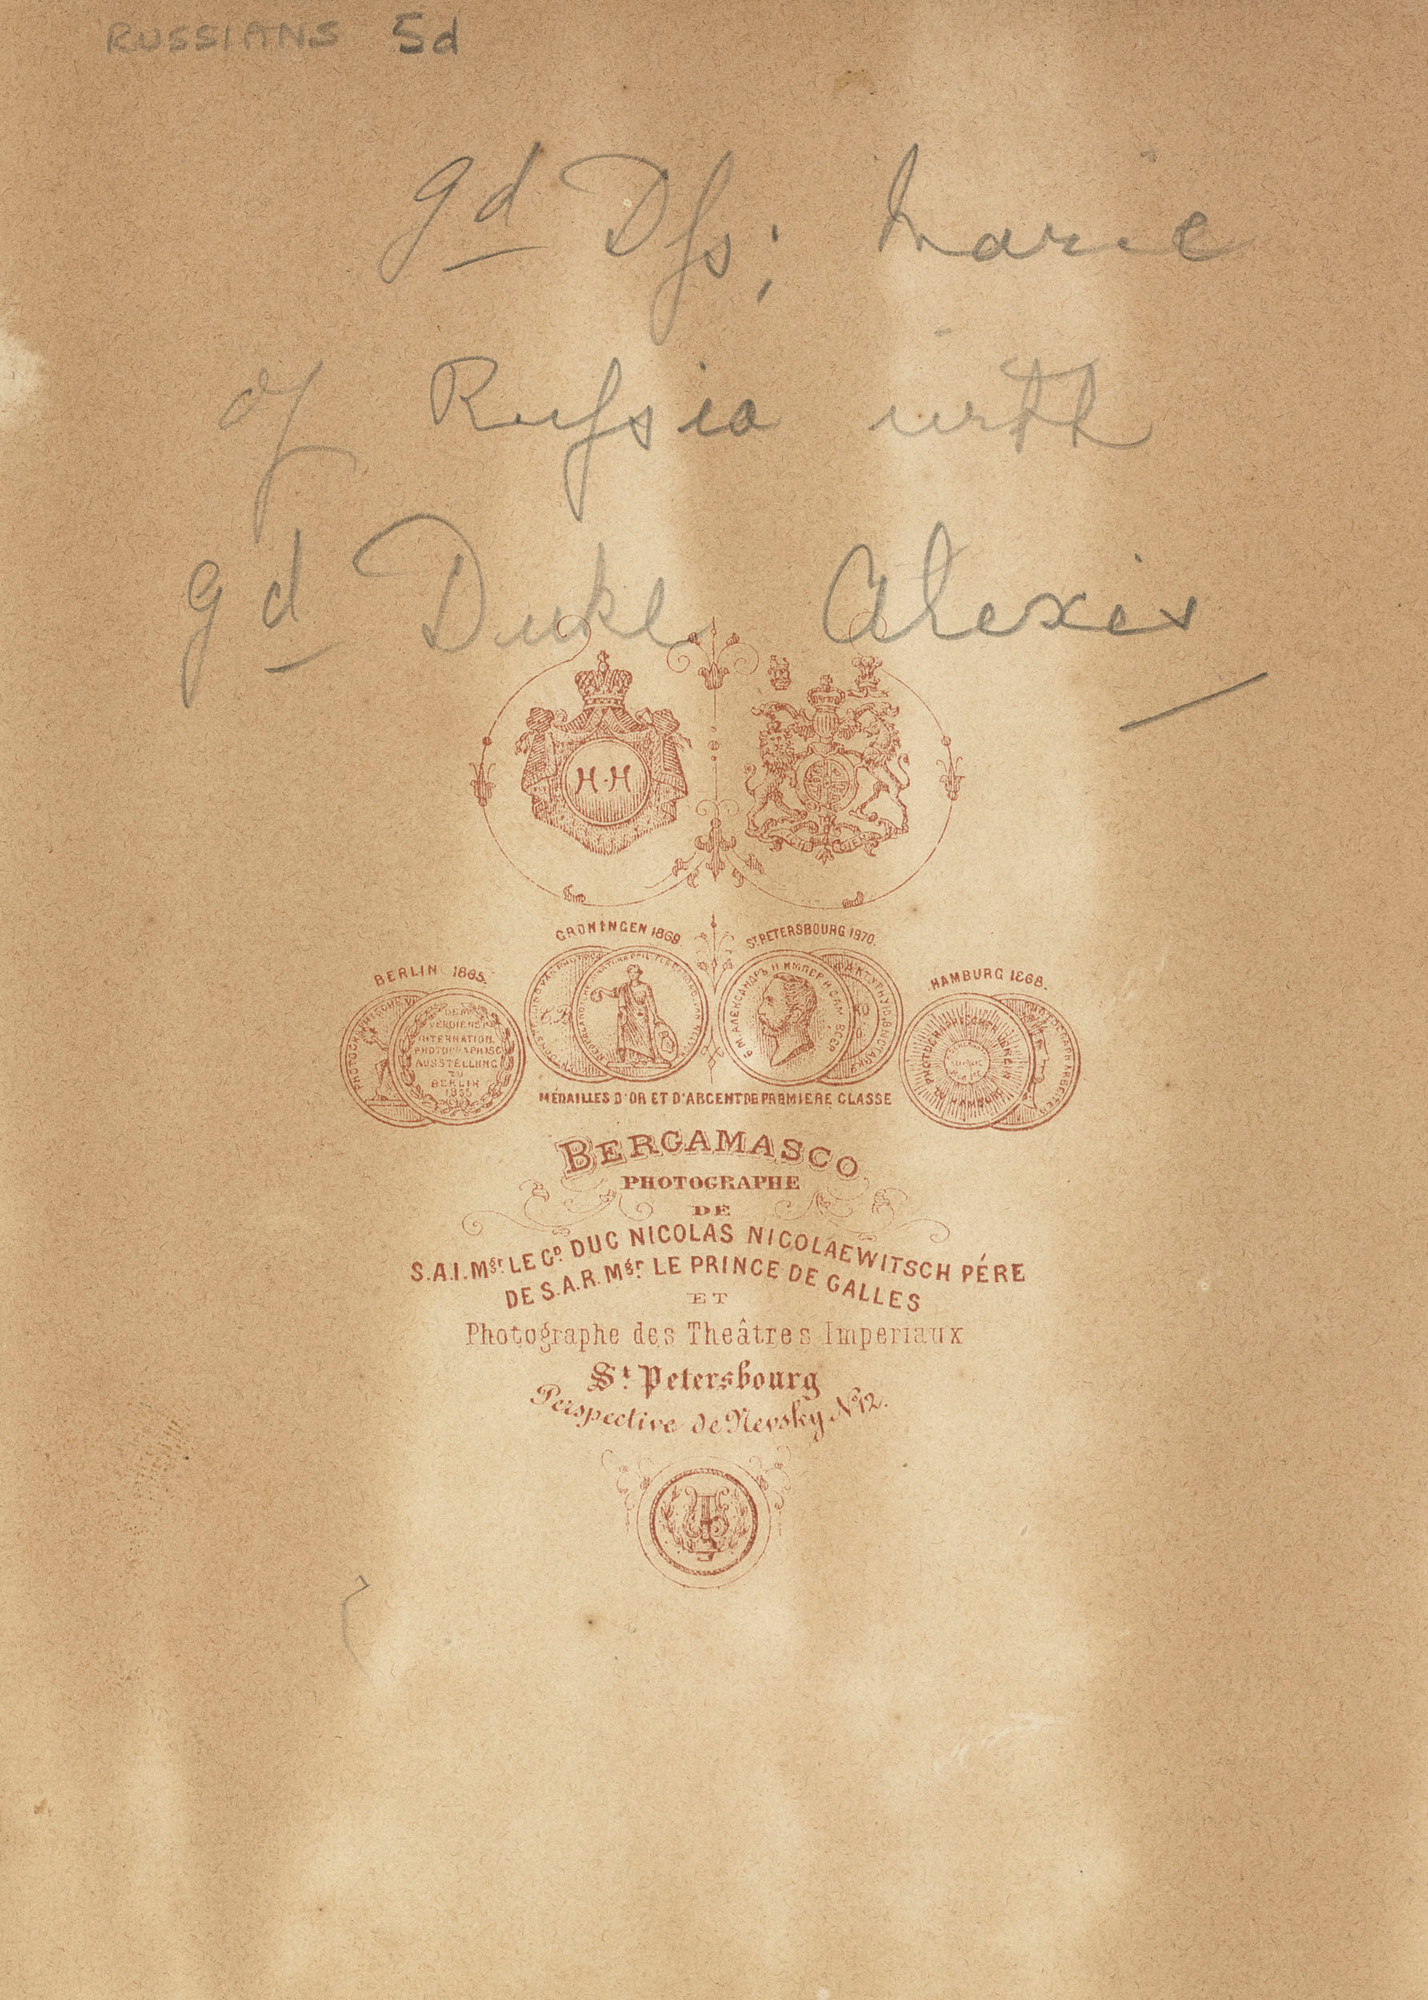 RUSSIANS 5d
gd Dſs; Marie
of Ruſsia with
gd Duke Alexis
H·H
GRONINGEN 1869.
ST PETERSBOURG 1870.
BERLIN 1865.
HAMBURG 1868.
DEM
VERDIENSTE
INTERNATION.
PHOTOGRAPHISCHE
AUSSTELLUNG
ZU
BERLIN
1865
MÉDAILLES D'OR ET D'ARGENT DE PREMIERE CLASSE
BERGAMASCO
PHOTOGRAPHE
DE
S.A.I. Mgr LE GD DUC NICOLAS NICOLAEWITSCH PÉRE
DE S.A.R. Mgr LE PRINCE DE GALLES
ET
Photographe des Theâtres Imperiaux
St Petersbourg
Perspective de Nevsky No 12.